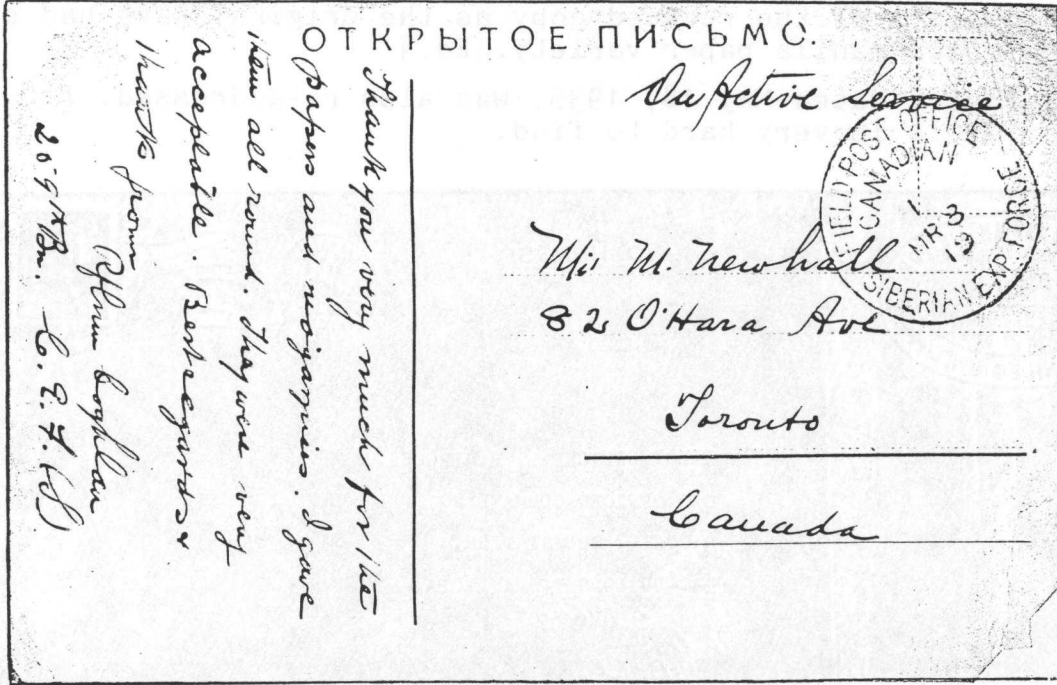 ОТКРЫТОЕ ПИСЬМО.
On Active Service
FIELD POST OFFICE
CANADIAN
1
MR 3
19
SIBERIAN EXP. FORCE
M. Newhall
82 O'Hara Ave
Toronto
Canada
Thank you very much for the
papers and magazines. I gave
them all round. They were very
acceptable. Best regards &
thanks from
Coghlan
259th Bn. C. E. F. (S)
1935, was also
very hard to find.